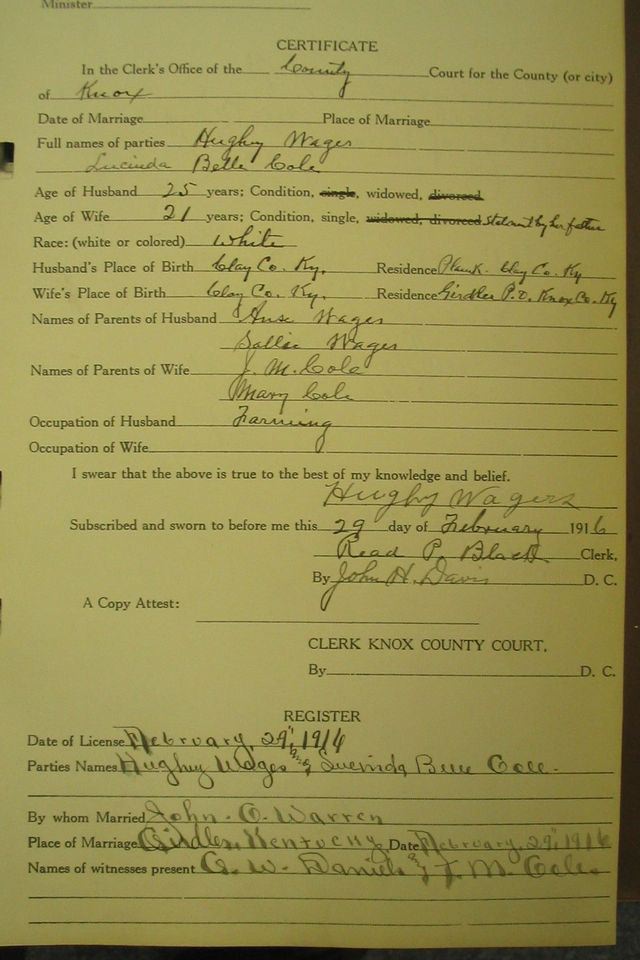 Minister
CERTIFICATE
In the Clerk's Office of the County Court for the County (or city)
of Knox
Date of Marriage Place of Marriage
Full names of parties Hughy Wages
Lucinda Belle Cole
Age of Husband 25 years; Condition, single, widowed, divorced
Age of Wife 21 years; Condition, single, widowed, divorced Statement by her father
Race: (white or colored) White
Husband's Place of Birth Clay Co. Ky. Residence Plank. Clay Co. Ky
Wife's Place of Birth Clay Co. Ky. Residence Girdler P.O. Knox Co. Ky
Names of Parents of Husband Anse Wages
Sallie Wages
Names of Parents of Wife J. M. Cole
Mary Cole
Occupation of Husband Farming
Occupation of Wife
I swear that the above is true to the best of my knowledge and belief.
Hughy Wagers
Subscribed and sworn to before me this 29 day of February 1916
Read P. Black Clerk,
By John H. Davis D. C.
A Copy Attest:
CLERK KNOX COUNTY COURT.
By D. C.
REGISTER
Date of License February, 29", 1916
Parties Names Hughy Wages & Lucinda Belle Cole.
By whom Married John. O. Warren
Place of Marriage Girdler, Kentucky Date February, 29", 1916
Names of witnesses present G. W. Daniels & J. M. Cole